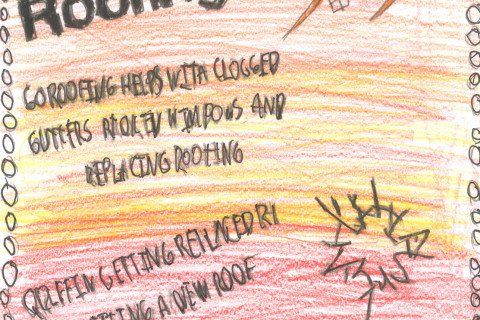 Roofing
GOROOFING HELPS WITH CLOGGED
GUTTERS WINDOWS AND
REPLACING ROOFING
GETTING REPLACED BY
A NEW ROOF